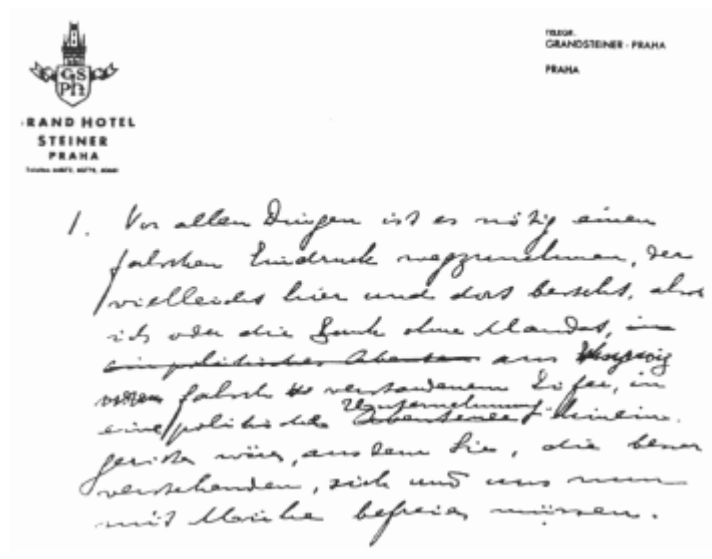 GS
PH
RAND HOTEL
STEINER
PRAHA
TELEGR.
GRANDSTEINER - PRAHA
PRAHA
1. Vor allen Dingen ist es nötig einen
falschen Eindruck wegzunehmen, der
vielleicht hier und dort besteht, als
ich oder die Bank ohne Mandat,
ein politisches Abenteuer aus
falsch verstandenem Eifer, in
eine politische Unternehmung hinein
gerissen wäre, aus dem Sie, die besser
verstehenden, sich und uns nun
mit Mühe befreien müssen.